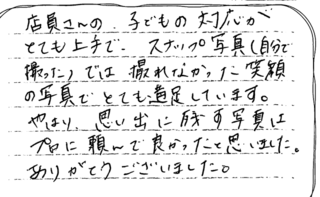 店員さんの、子どもの対応が
とても上手で、スナップ写真(自分で
撮った)では撮れなかった笑顔
の写真でとても満足しています。
やはり、思い出に残す写真は
プロに頼んで良かったと思いました。
ありがとうございました。